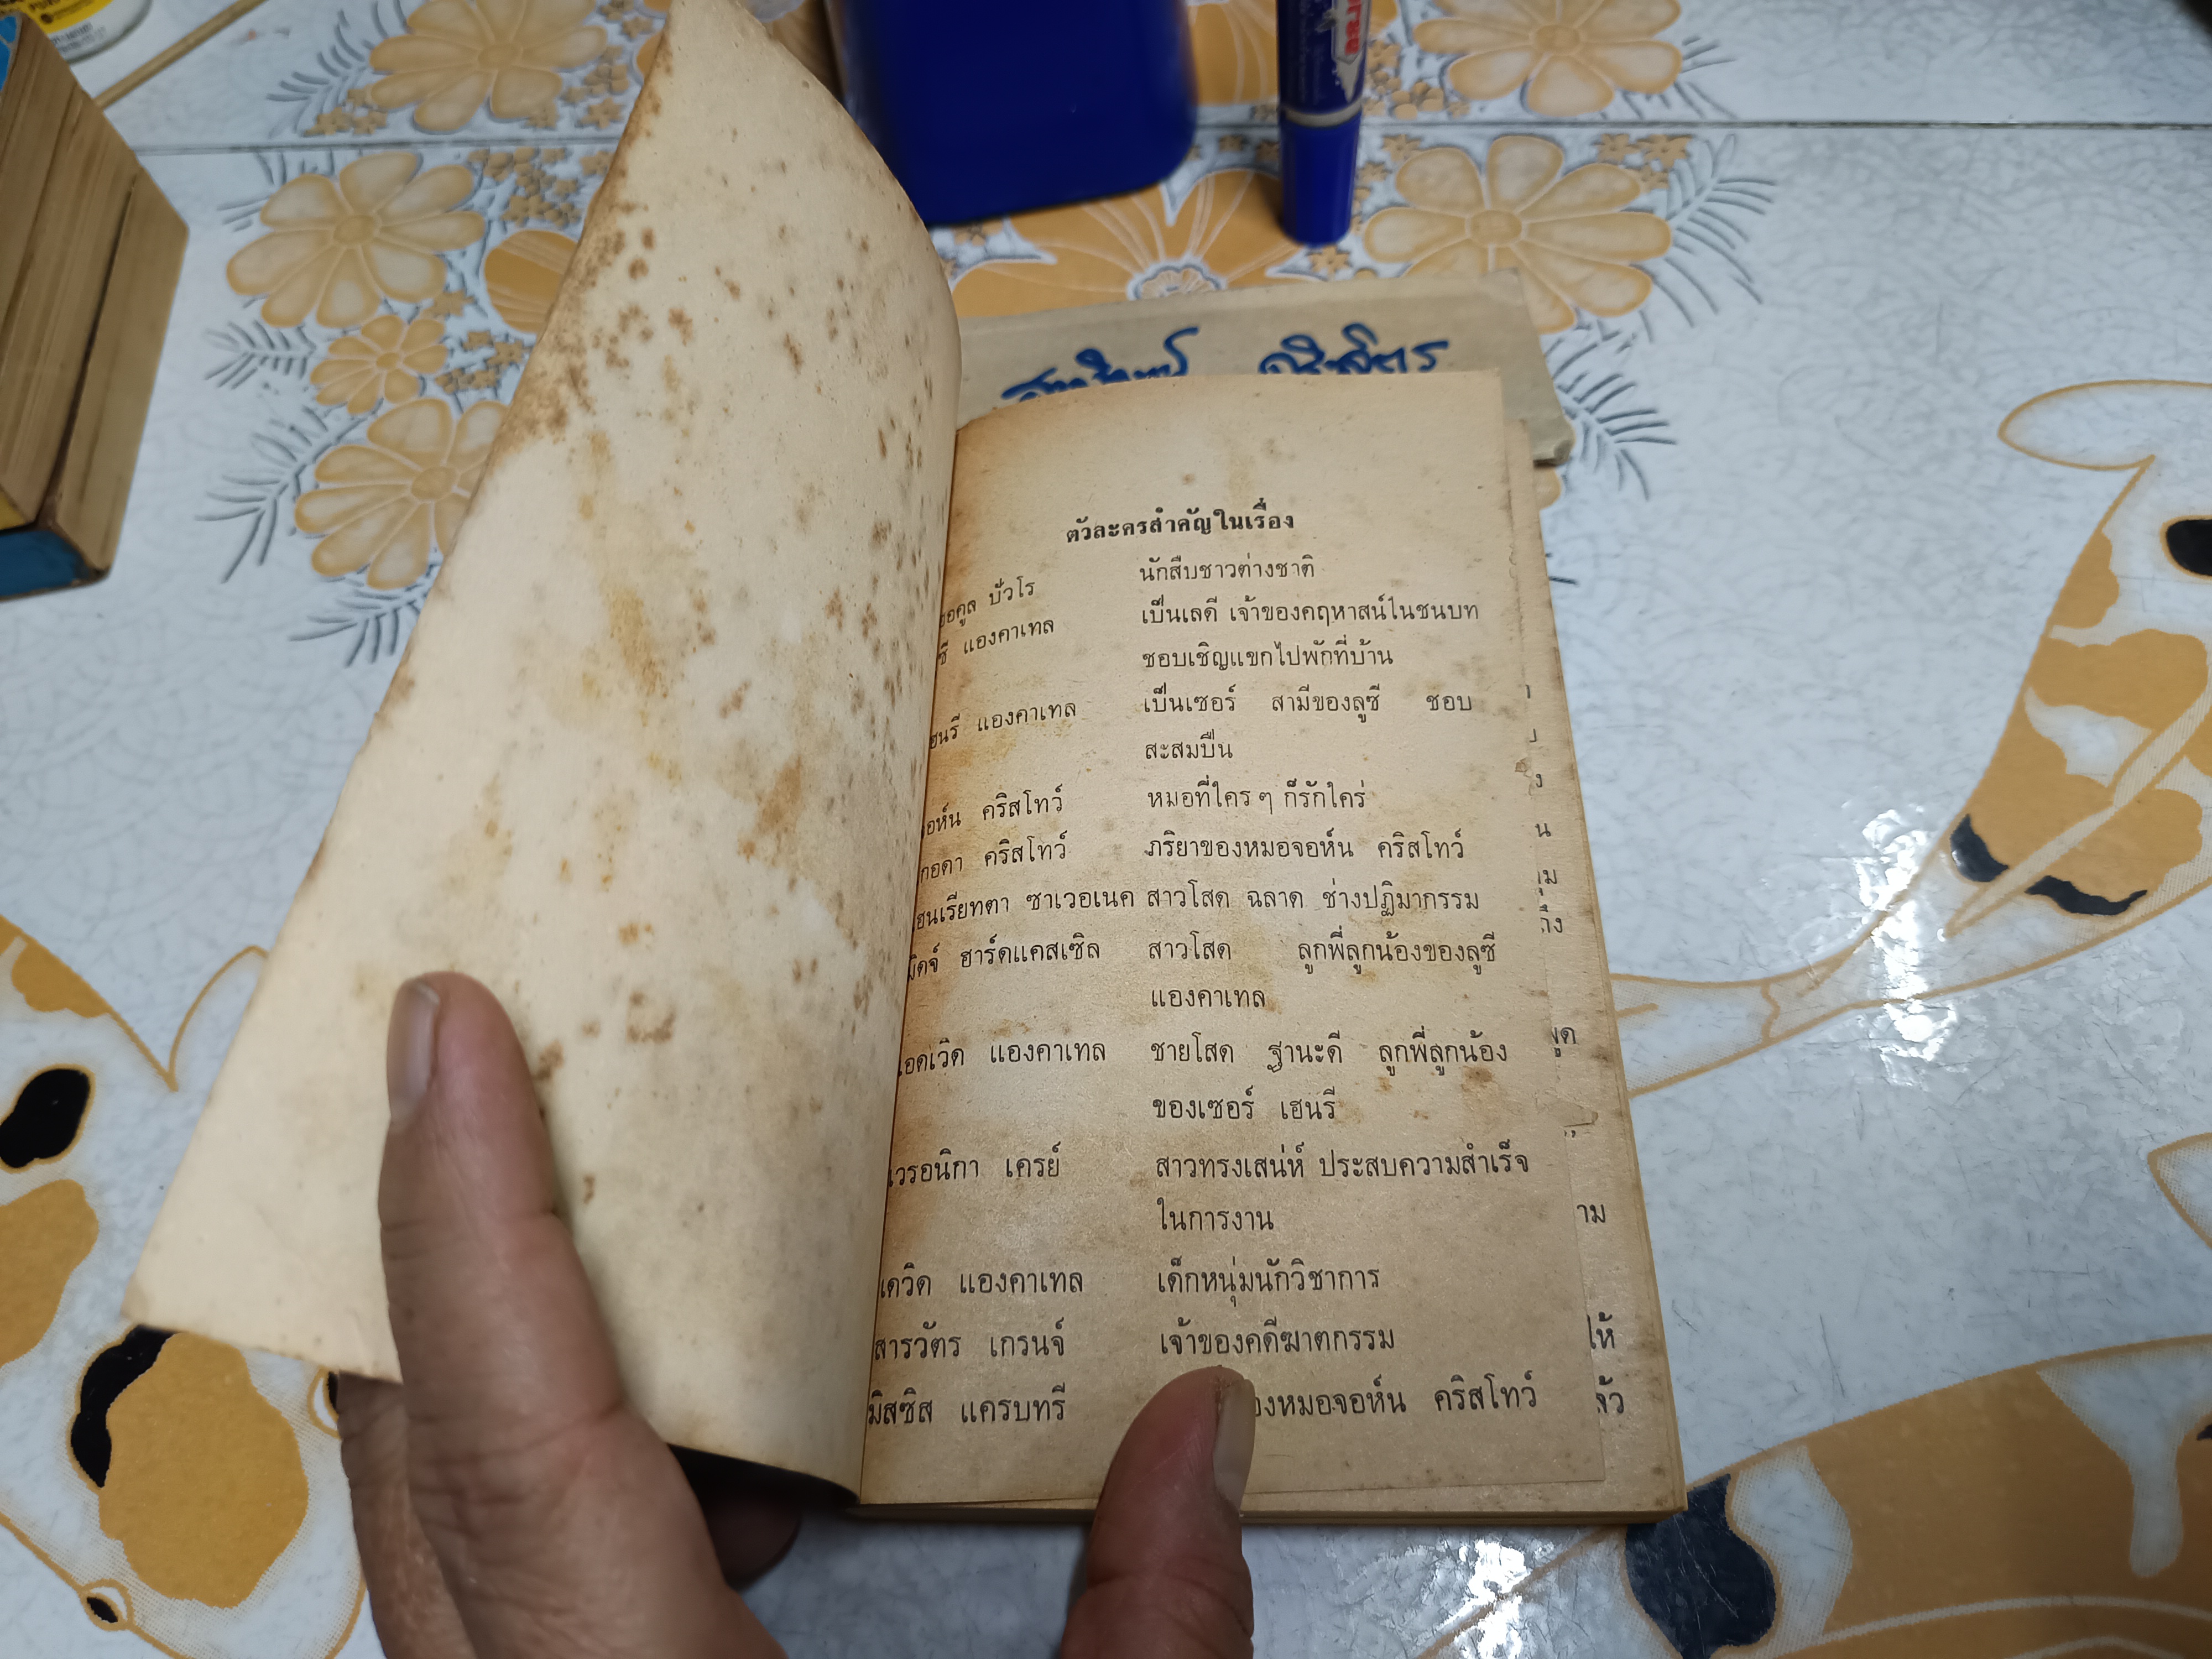 ตัวละครสำคัญในเรื่อง
ปัวโร นักสืบชาวต่างชาติ
แองคาเทล เป็นเลดี เจ้าของคฤหาสน์ในชนบท
ชอบเชิญแขกไปพักที่บ้าน
แองคาเทล เป็นเซอร์ สามีของลูซี ชอบ
สะสมปืน
คริสโทว์ หมอที่ใคร ๆ ก็รักใคร่
คริสโทว์ ภริยาของหมอจอห์น คริสโทว์
ฮนเรียทตา ซาเวอเนค สาวโสด ฉลาด ช่างปฏิมากรรม
มิดจ์ ฮาร์ดแคสเซิล สาวโสด ลูกพี่ลูกน้องของลูซี
แองคาเทล
เอดเวิด แองคาเทล ชายโสด ฐานะดี ลูกพี่ลูกน้อง
ของเซอร์ เฮนรี
เวรอนิกา เครย์ สาวทรงเสน่ห์ ประสบความสำเร็จ
ในการงาน
เดวิด แองคาเทล เด็กหนุ่มนักวิชาการ
สารวัตร เกรนจ์ เจ้าของคดีฆาตกรรม
มิสซิส แครบทรี องหมอจอห์น คริสโทว์